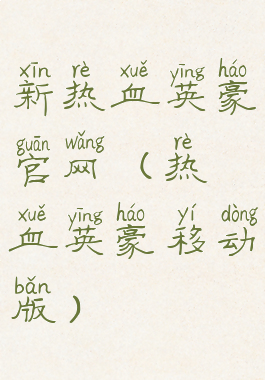 xīn rè xuě yīng háo
新热血英豪
guān wǎng rè
官网（热
xuě yīng háo yí dòng
血英豪移动
bǎn
版）